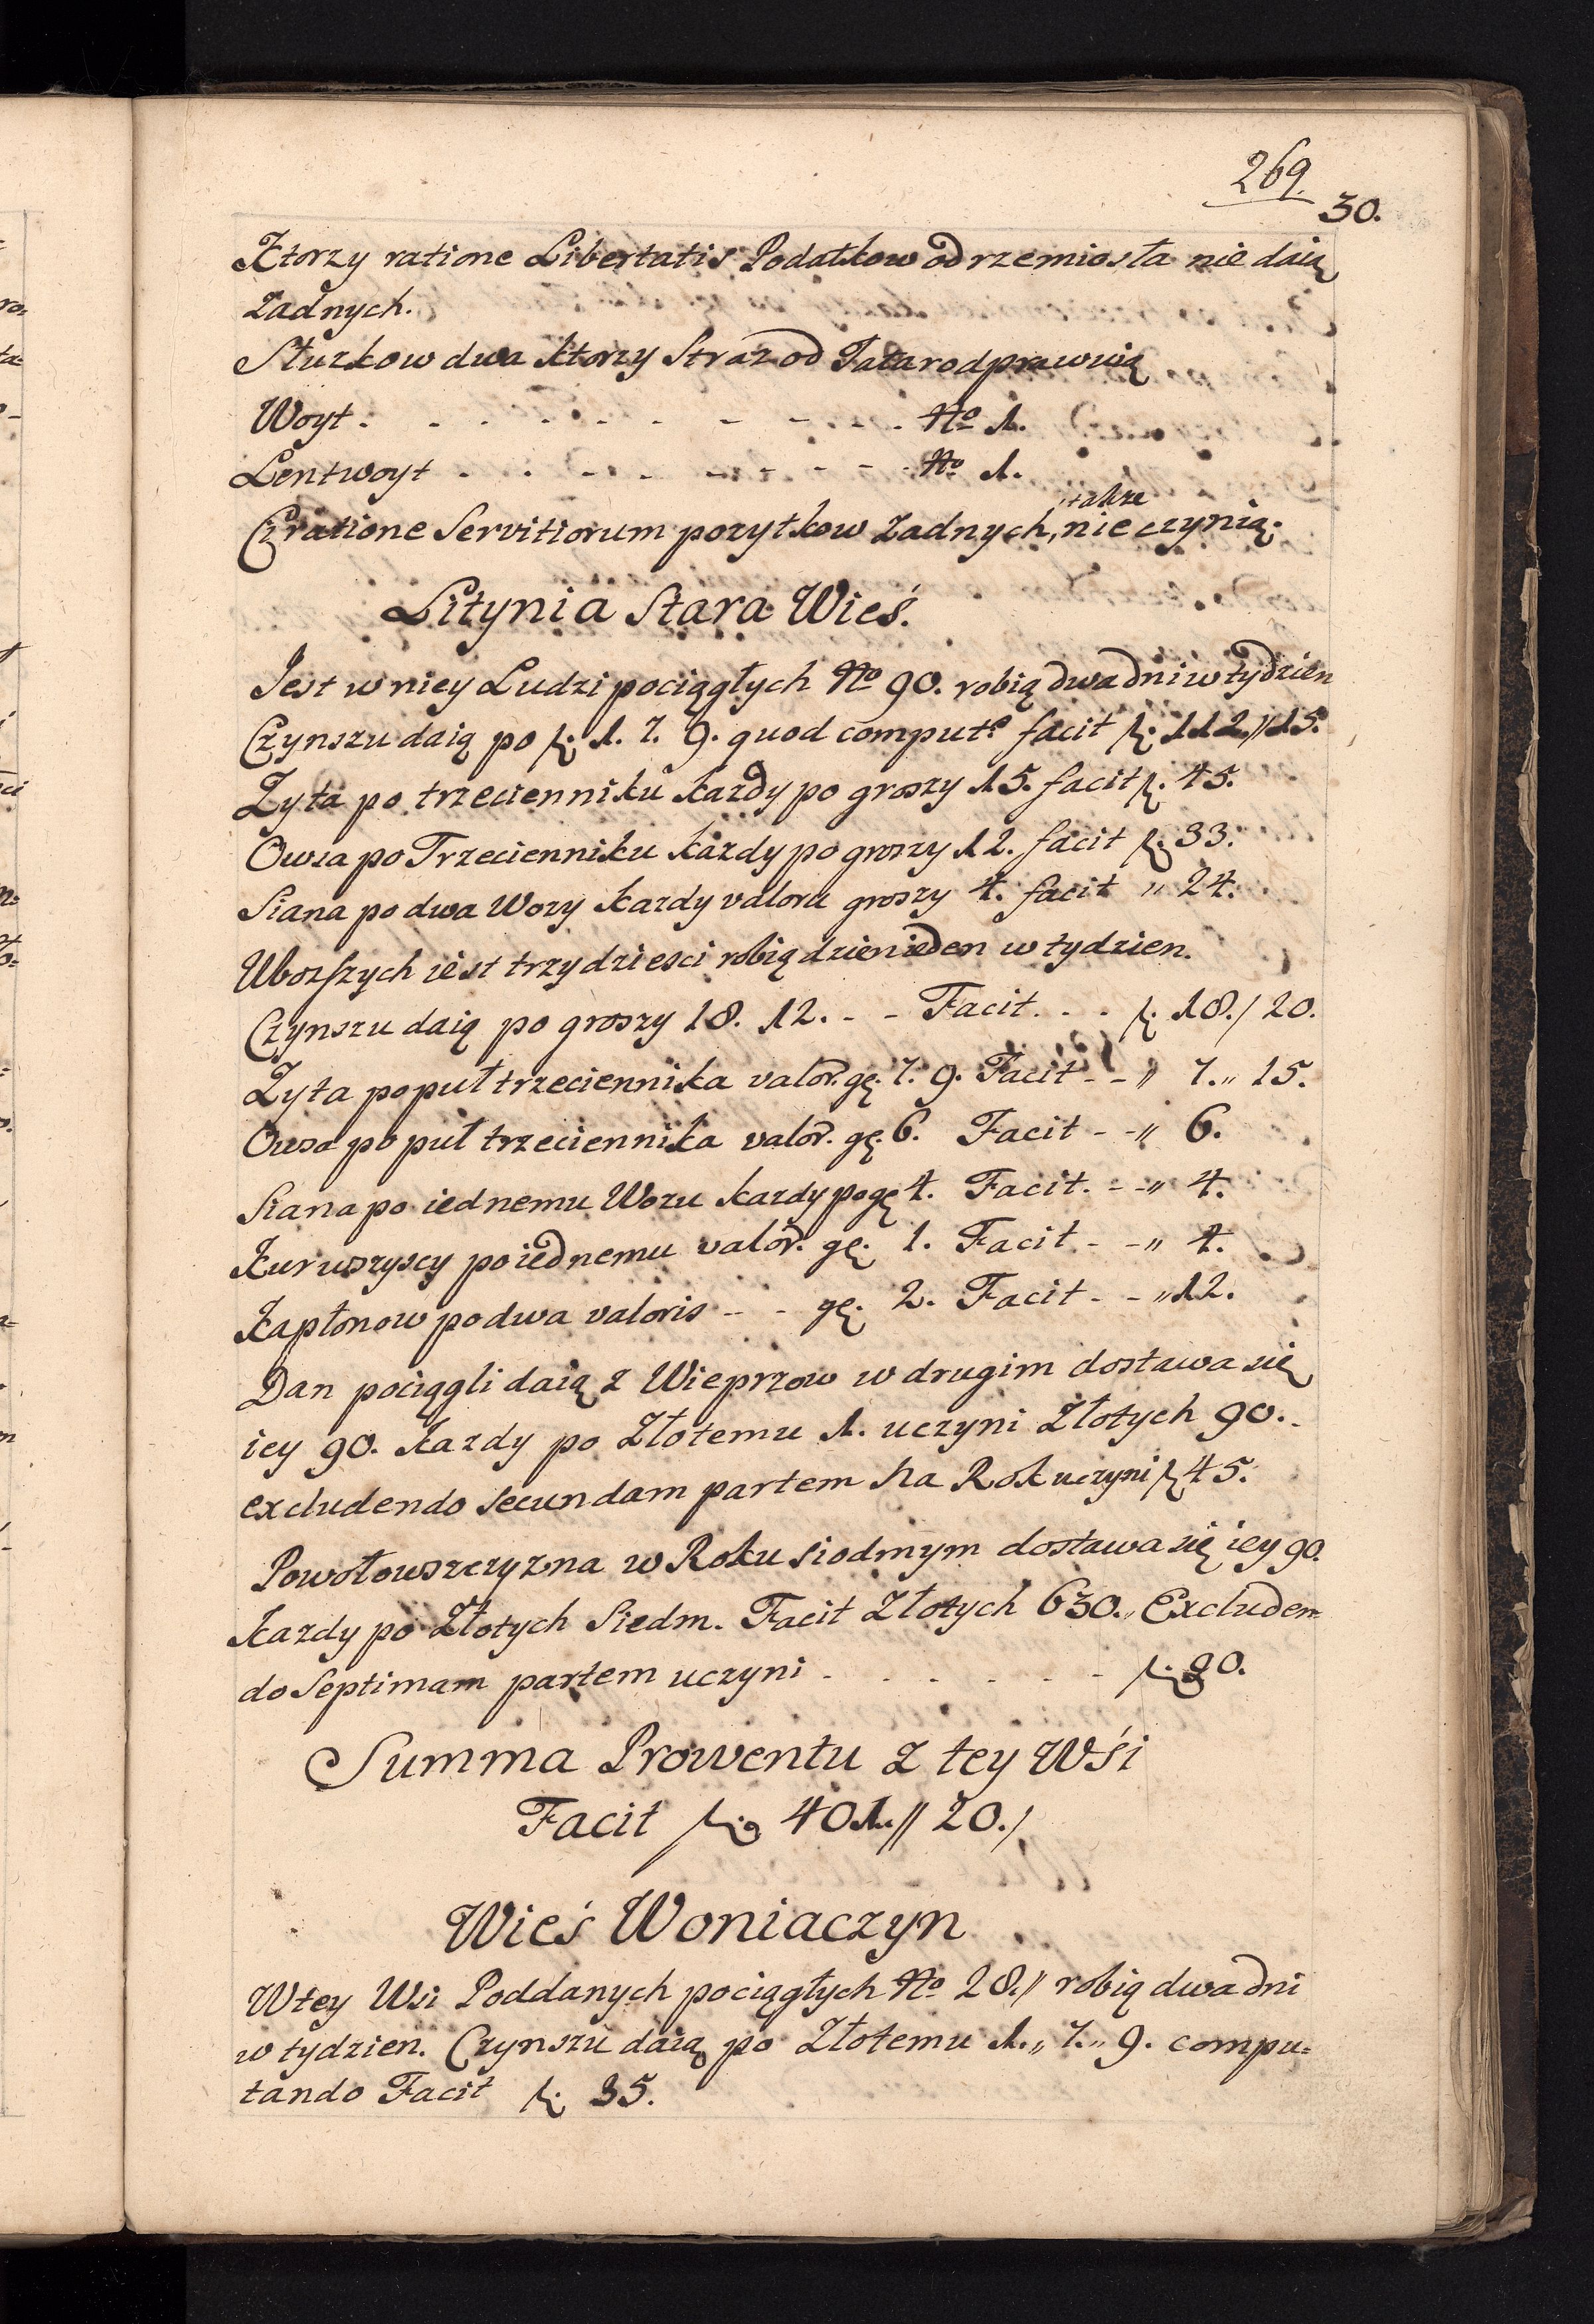 269.
30.
Ktorzy ratione Libertatis Podatkow od rzemiosła nie daią
żadnych.
Służkow dwa ktorzy Straz od Tatar odprawuią
Woyt: - - - - - - - - No 1.
Lentwoyt - - - - - - - - No 1.
także
Ci ratione Servitiorum pozytkow żadnych, nie czynią.
Litynia Stara Wieś.
Jest w niey Ludzi pociągłych No 90. robią dwa dni w tydzien
Czynszu daią po f. 1. 7. 9. quod computo facit f. 112.//15.
Zyta po trzecienniku kazdy po groszy 15. facit f. 45.
Owsa po Trzecienniku kazdy po groszy 12. facit f. 33.
Siana po dwa Wozy kazdy valora groszy 4. facit " 24.
Ubozszych iest trzydziesci robią dzien ieden w tydzien.
Czynszu daią po groszy 18. 12. - - Facit. - - f. 18./ 20.
Zyta po puł trzeciennika valor. gę. 7. 9. Facit - - " 7." 15.
Owsa po puł trzeciennika valor. gę. 6. Facit - - " 6.
Siana po iednemu Wozu kazdy po gę 4. Facit. - - " 4.
Kur wszyscy po iednemu valor. gę. 1. Facit - - " 4.
Kapłonow po dwa valoris - - gę. 2. Facit - - " 12.
Dan pociągli daią z Wieprzow w drugim dostawa się
iey 90. Kazdy po Złotemu 1. uczyni Złotych 90.
excludendo secundam partem na Rok uczyni f. 45.
Powołowszczyzna w Roku siodmym dostawa się iey 90.
Kazdy po Złotych Siedm. Facit Złotych 630." Excluden
do Septimam partem uczyni - - - - - - f. 90.
Summa Prowentu z tey Wśi
Facit f. 401.// 20./
Wieś Woniaczyn
W tey Wsi Poddanych pociągłych No 28.// robią dwa dni
w tydzien. Czynszu daią po Złotemu 1." 7." 9. compu=
tando Facit f. 35.